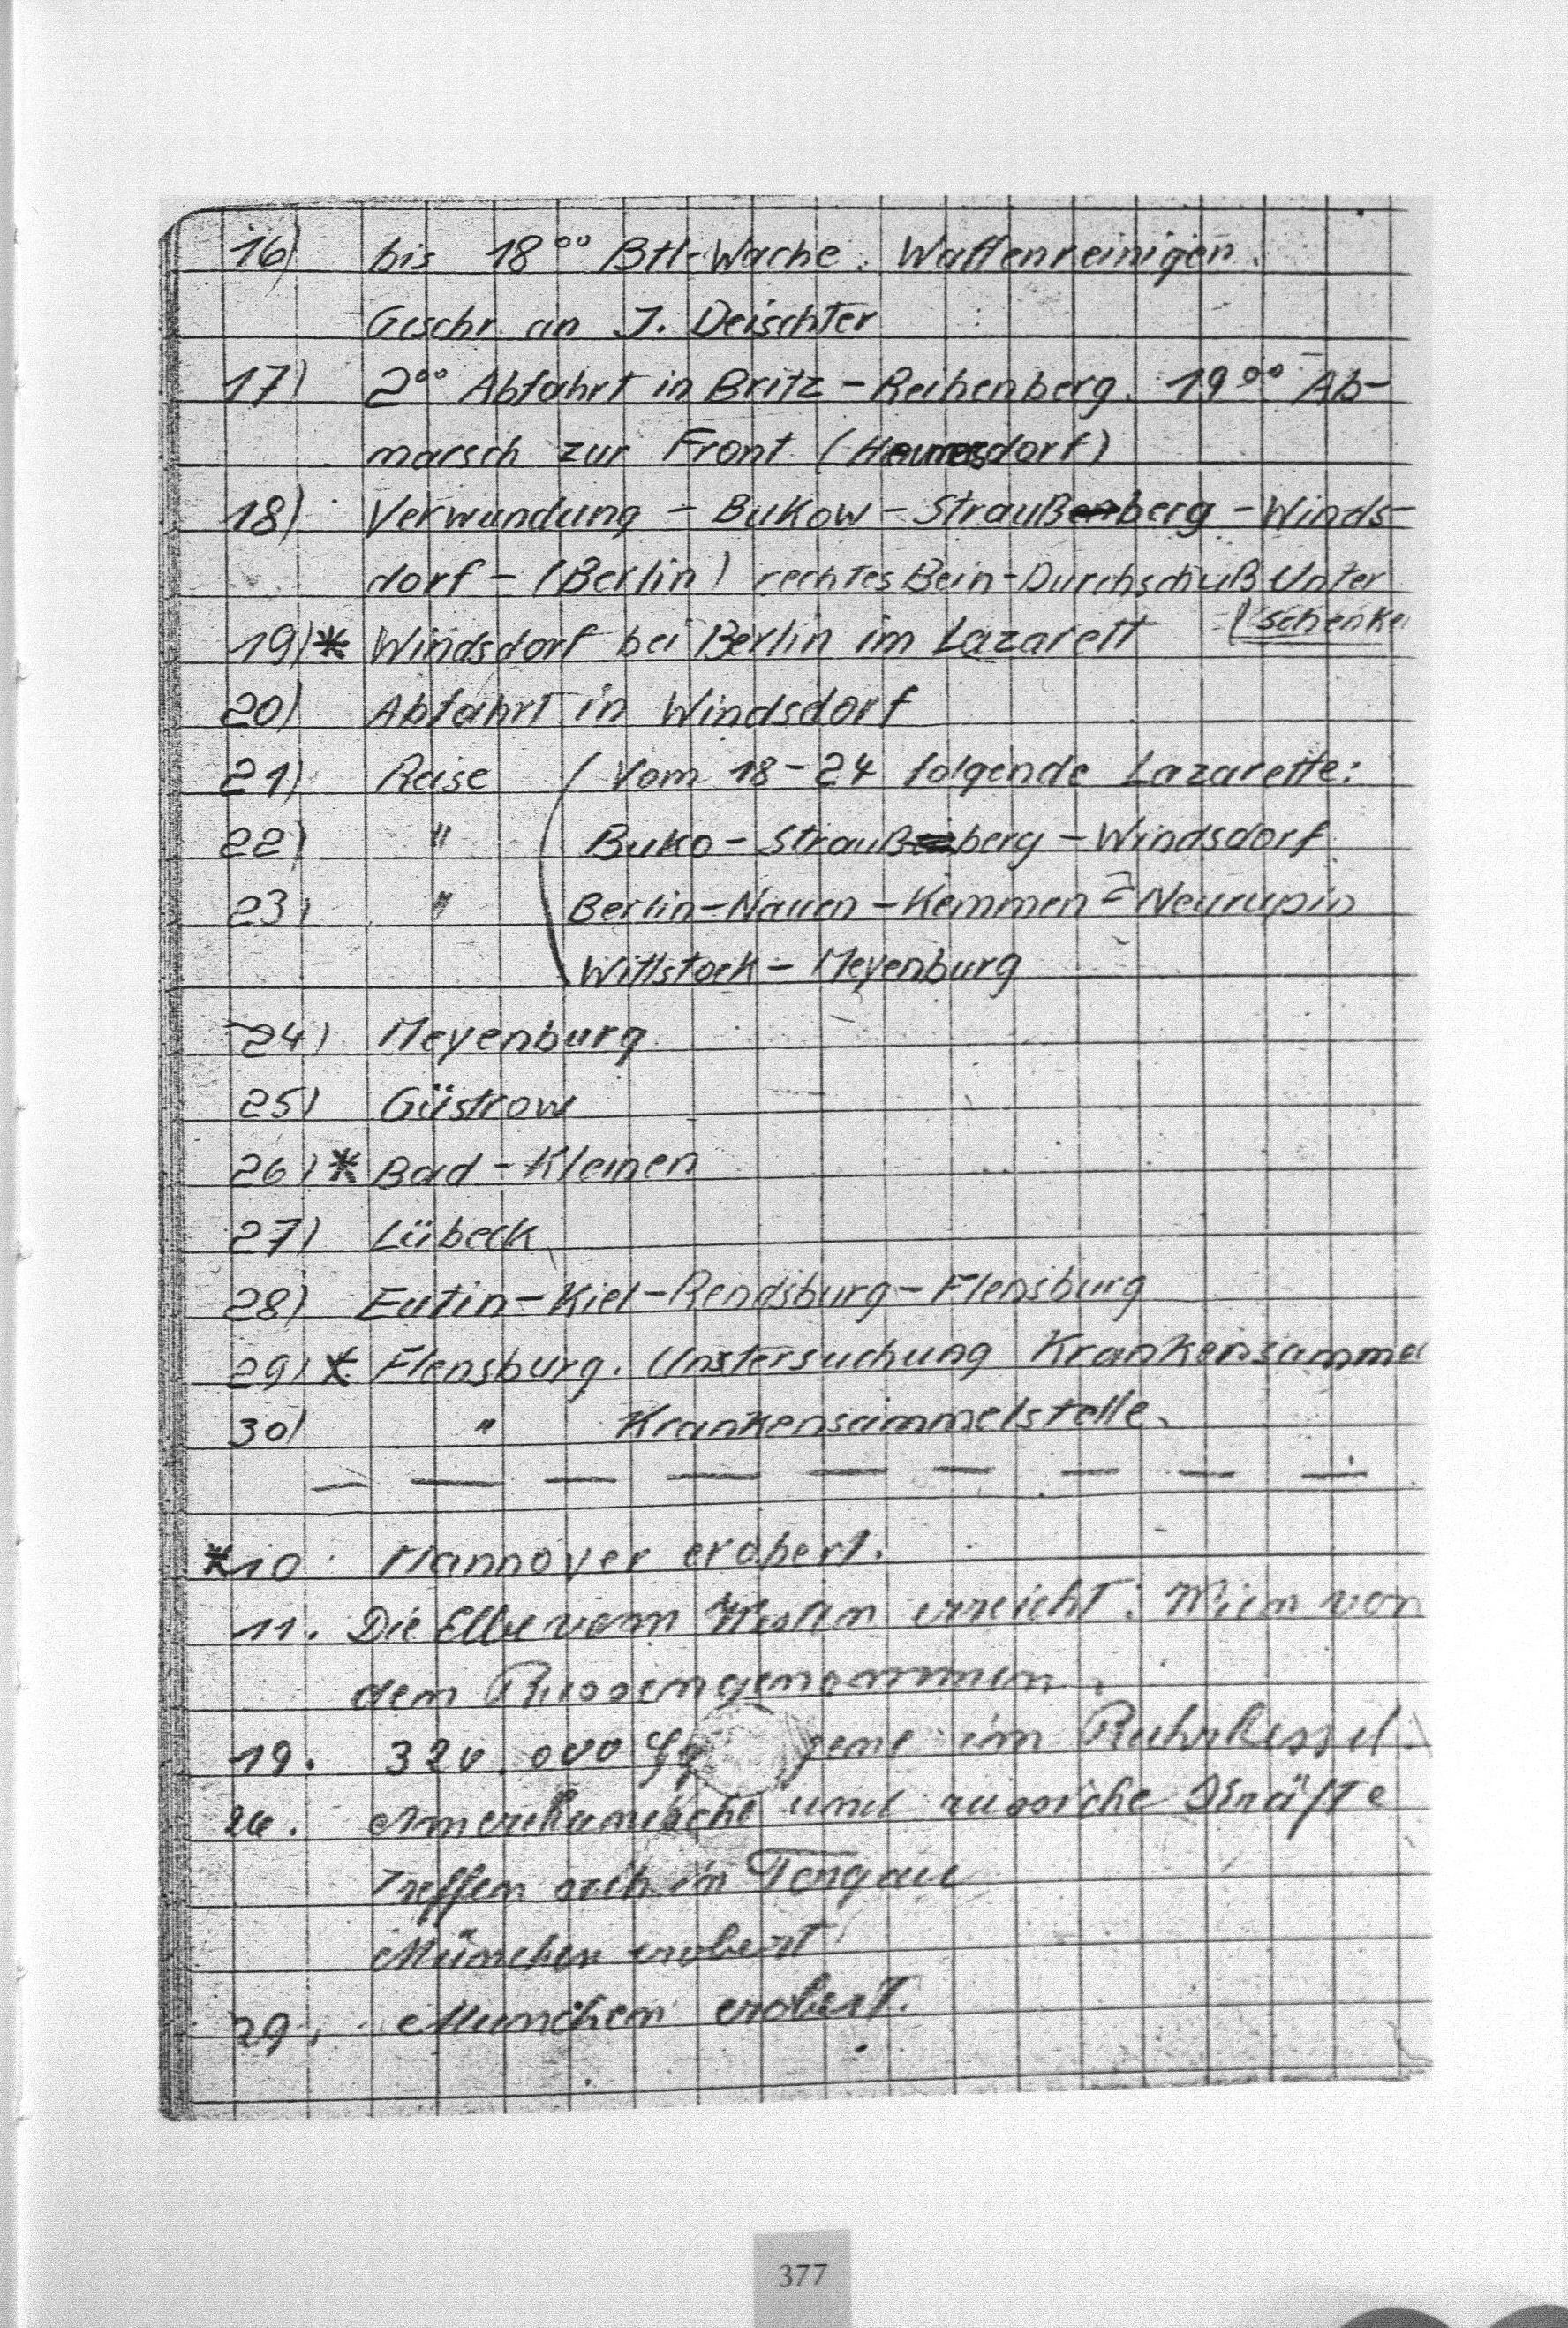 16) bis 18°° Btl-Wache. Waffenreinigen.
Geschr. an J. Deischter
17) 2°° Abfahrt in Britz - Reihenberg. 19°° Ab-
marsch zur Front (dorf)
18) Verwundung - Bukow - Straußberg - Winds-
dorf - (Berlin) rechtes Bein-Durchschuß Unter
(schenkel
19)* Windsdorf bei Berlin im Lazarett
20) Abfahrt in Windsdorf
21) Reise (Vom 18-24 folgende Lazarette:
22) " Buko - Straußberg - Windsdorf
23) " Berlin-Nauen-Kemmen-Neurupin
Wittstock - Meyenburg
24) Meyenburg
25) Güstrow
26)* Bad-Kleinen
27) Lübeck
28) Eutin-Kiel-Rendsburg-Flensburg
29)* Flensburg. Unstersuchung Krankensammel
30) " Krankensammelstelle.
— — — — — — — — —
*10. Hannover erobert.
11. Die Elbe vom Westen erreicht. Wien von
den Russen genommen.
19. 320.000 gene im Ruhrkessel.
26. Amerikanische und russiche Kräfte
Treffen sich in Torgau
München erobert
29. München erobert.
377